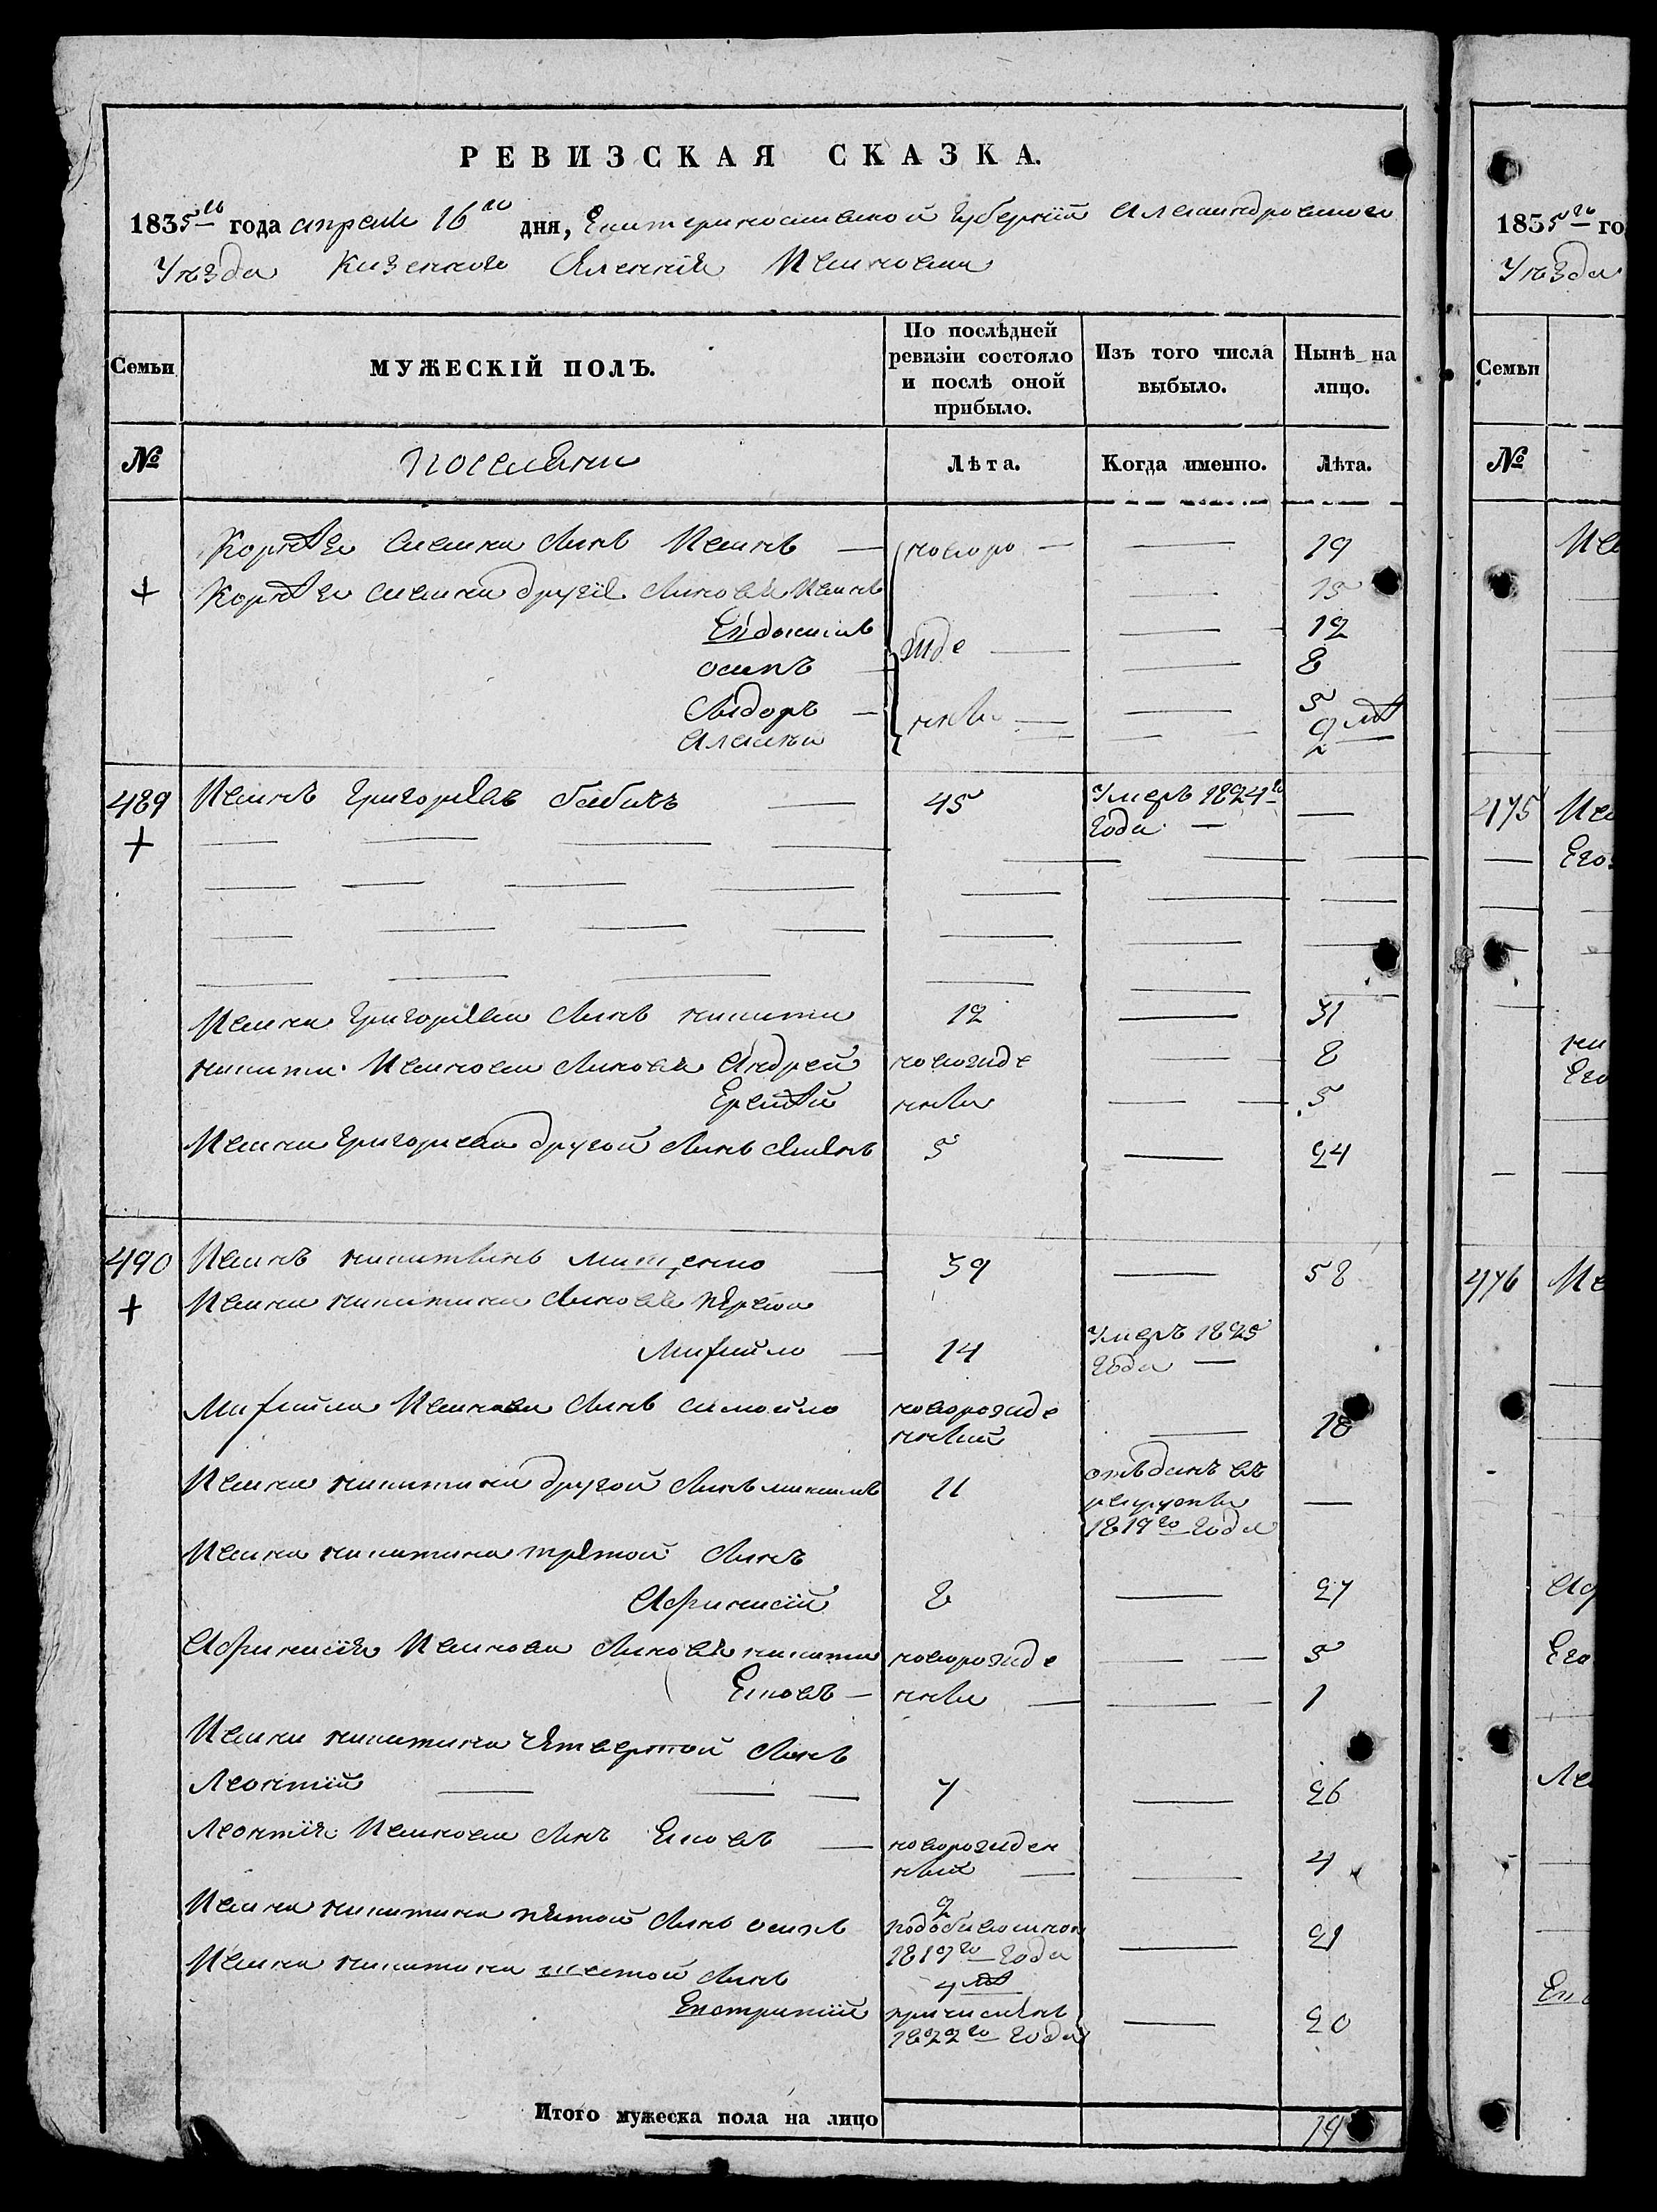 РЕВИЗСКАЯ СКАЗКА.
1835го года апреля 16го дня, Екатеринославской Губернїи Александровскаго
Уѣзда Казеннаго Селенїя
Семьи
МУЖЕСКІЙ ПОЛЪ.
По послѣдней
ревизіи состояло
и послѣ оной
прибыло.
Изъ того числа
выбыло.
Нынѣ на
лицо.
№
поселяни
Лѣта.
Когда именно.
Лѣта.
Корнѣя Савина Сынъ Иванъ новоро 19
Корнѣя Савина другїе Сыновья Иванъ 15
Евдокимъ 12
осипъ жде 8
Сидоръ ннѣи 5
2 лѣ
489 Иванъ Григорьевъ бабичь 45 Умеръ 1824го
года
Ивана Григорьева Сынъ никита 12 31
никиты Иванова Сыновья Андрей новожде 8
Еремѣй нныи 5
Ивана Григорьева другой Сынъ 5 24
490 Иванъ никитинъ мищенко 39 58
Ивана никитина Сыновья первои
Михайло 14 Умеръ 1825
года
Михайла Иванова Сынъ самойло новорожде
нныий 18
Ивана никитина другой Сынъ максимъ 11 отъданъ въ
рекруты
1819го года
Ивана никитина третой Сынъ
Афанасїй 8 27
Афанасїя Иванова Сыновья никита новорожде 5
Яковъ нныи 1
Ивана никитина Четвертой Сынъ
Леонтїй 7 26
Леонтїя Иванова Сынъ Яковъ новорожден
ный 4
2
Ивана никитина пятой Сынъ осипъ 21
1819го года
Ивана никитина шестой Сынъ 4 лѣ
причисленъ
1822го года 20
Итого мужеска пола на лицо 19
1835го го
Уѣзда
Семьи
№
475
Его
476
Его